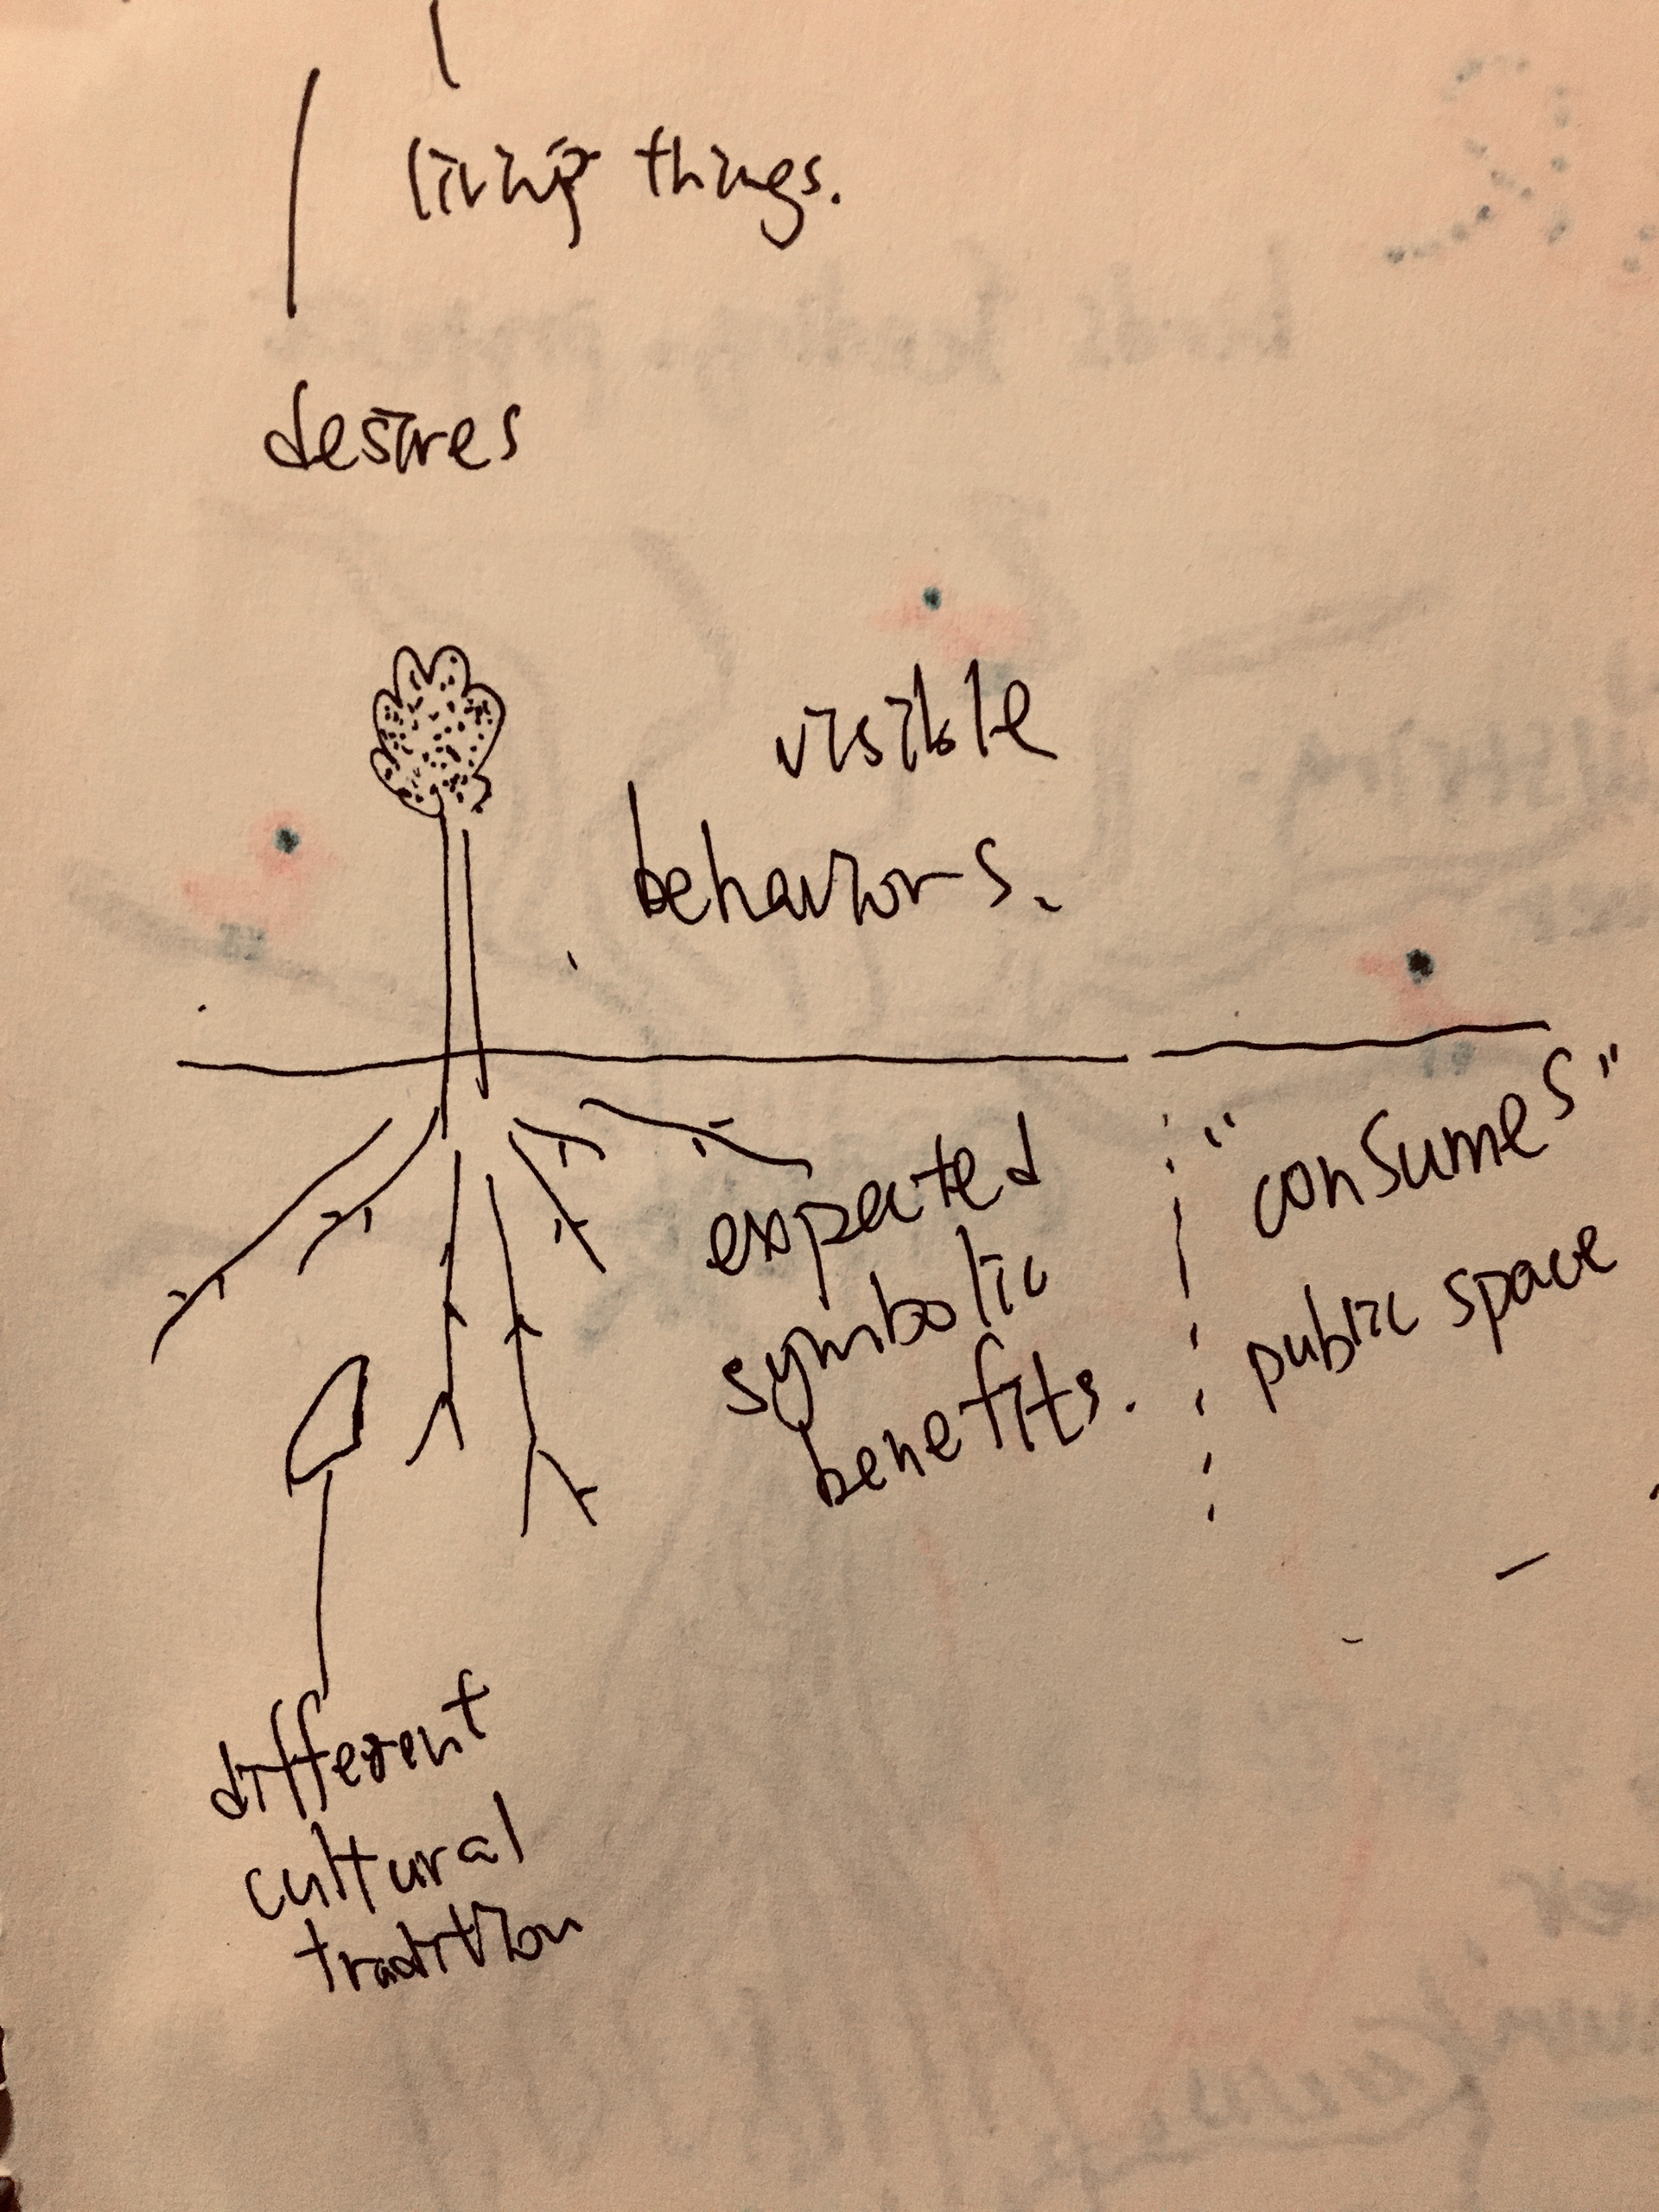 living things.
desires
visible
behaviors.
expected
symbolic
benefits.
"consumes"
public space
different
cultural
tradition